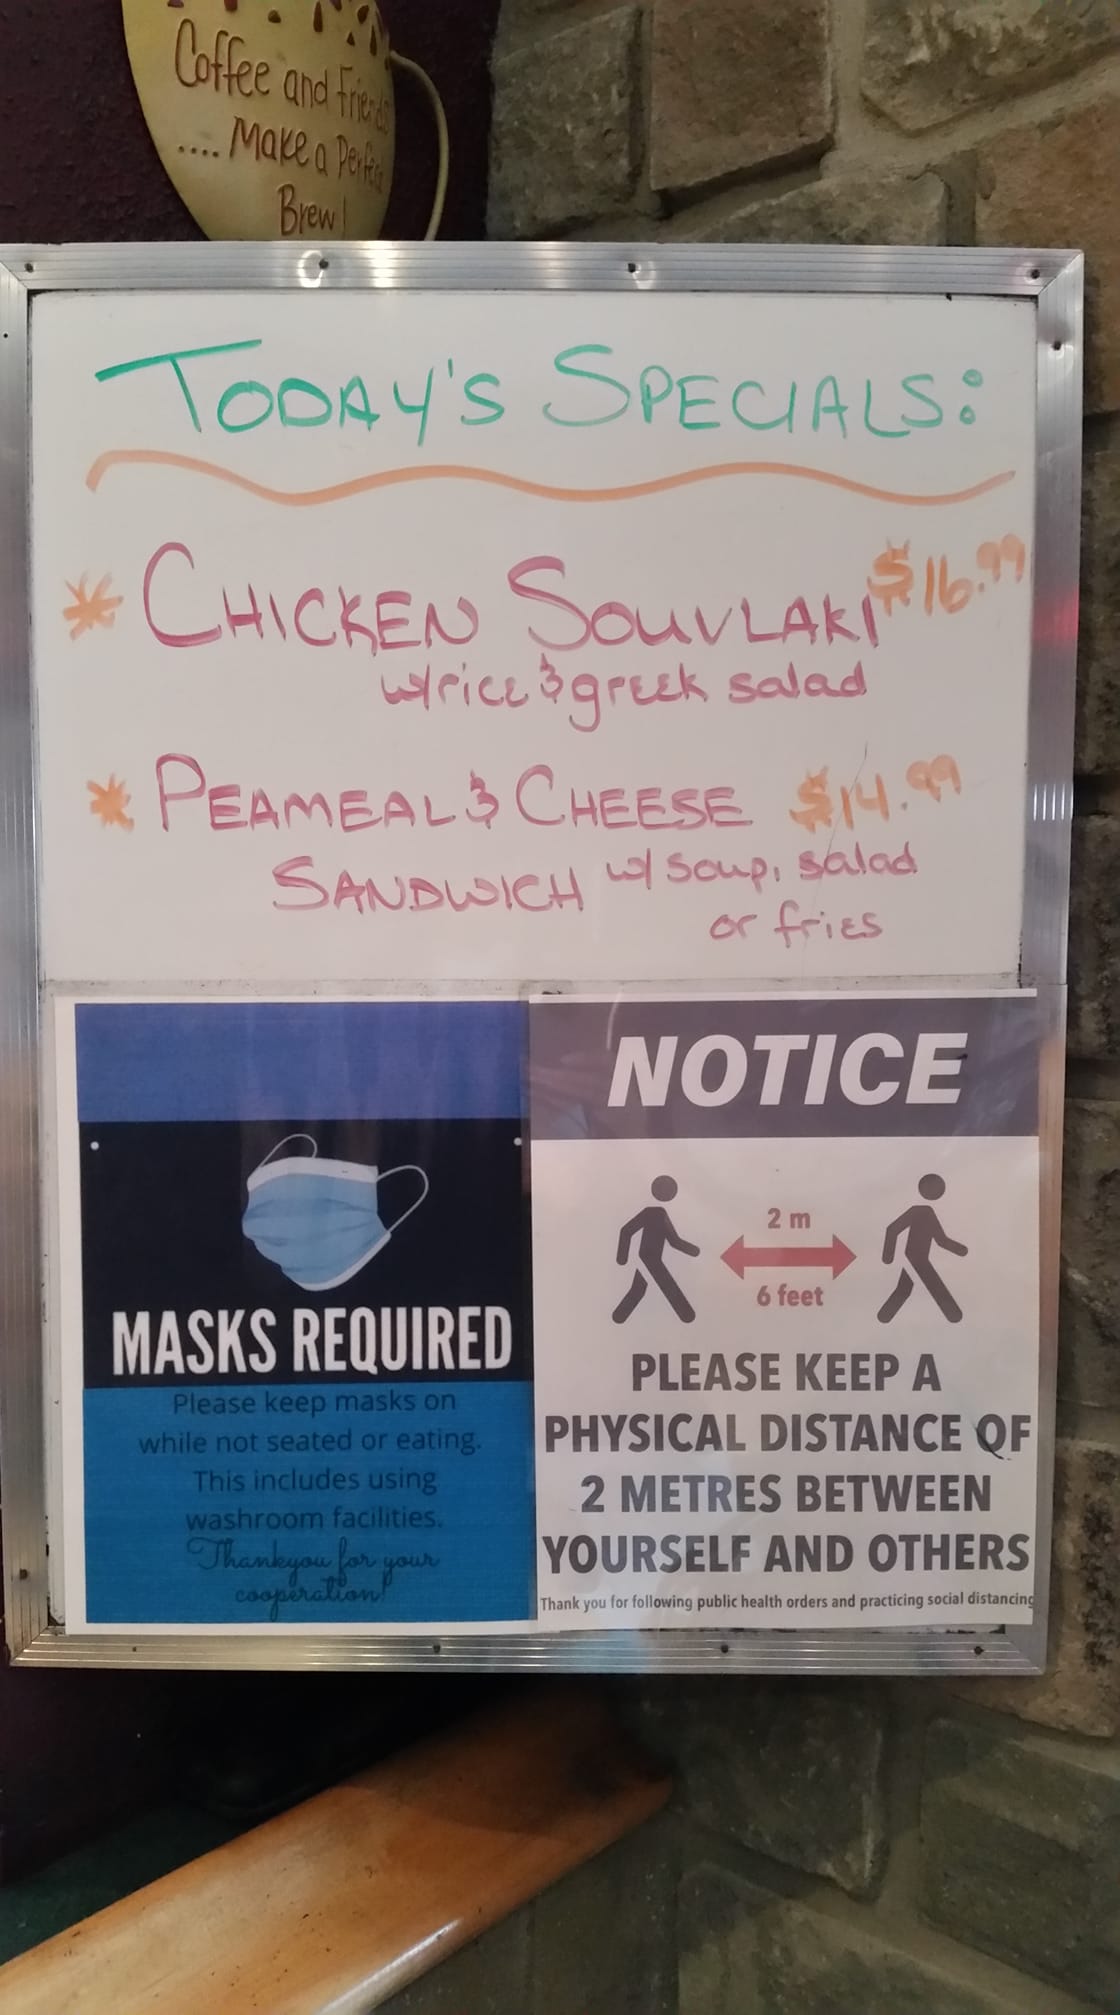 Coffee and Friends
.... Make a Perfect
Brew!
TODAY'S SPECIALS:
* CHICKEN SOUVLAKI $16.99
w/rice & greek salad
* PEAMEAL & CHEESE $14.99
SANDWICH w/ soup, salad
or fries
MASKS REQUIRED
Please keep masks on
while not seated or eating.
This includes using
washroom facilities.
Thankyou for your
cooperation!
NOTICE
2 m
6 feet
PLEASE KEEP A
PHYSICAL DISTANCE OF
2 METRES BETWEEN
YOURSELF AND OTHERS
Thank you for following public health orders and practicing social distancing